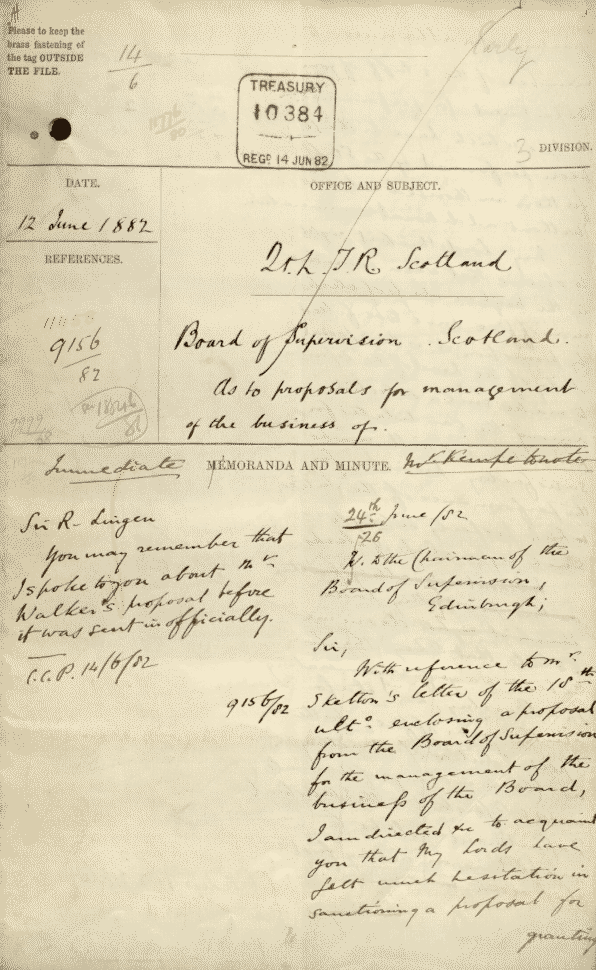 Please to keep the
brass fastening of
the tag OUTSIDE
THE FILE.
14
6
Early
TREASURY
10384
REGD. 14 JUN 82
3 DIVISION.
DATE.
12 June 1882
REFERENCES.
9156
82
OFFICE AND SUBJECT.
Scotland
Board of Supervision. Scotland.
As to proposals for management
of the business of.
Immediate
MEMORANDA AND MINUTE.
Mr Kempe to note
Sir R. Lingen
You may remember that
I spoke to you about Mr
Walker's proposal before
it was sent in officially.
C.C.P. 14/6/82
9156/82
24th June /82
26
to the Chairman of the
Board of Supervision,
Edinburgh;
Sir,
With reference to Mr
Skelton's letter of the 18th
ulto. enclosing a proposal
from the Board of Supervision
for the management of the
business of the Board,
I am directed &c to acquaint
you that My Lords have
felt much hesitation in
sanctioning a proposal for
granting